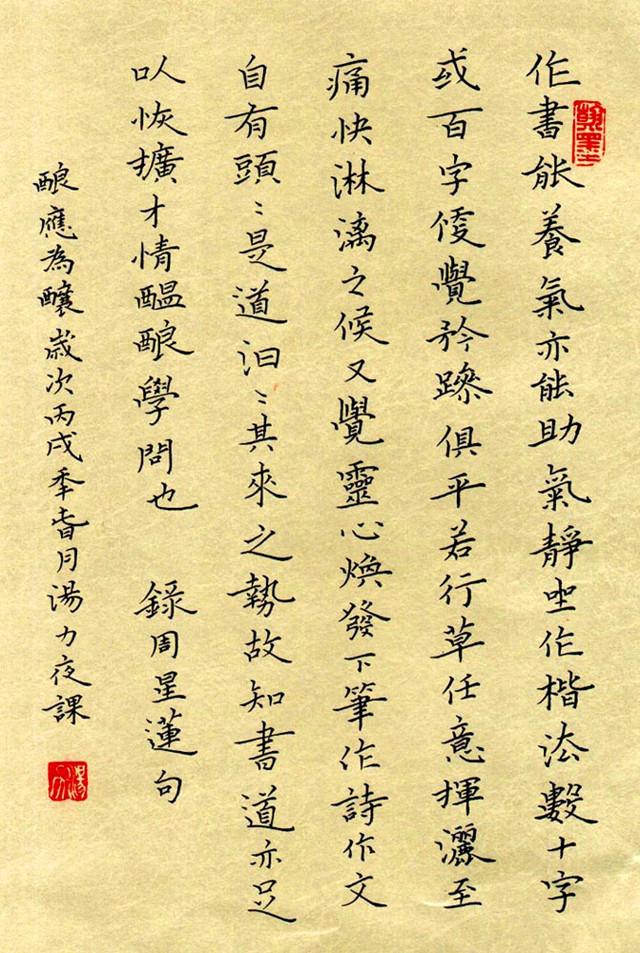 作書能養氣亦能助氣靜坐作楷法數十字
或百字便覺矜躁俱平若行草任意揮灑至
痛快淋漓之候又覺靈心煥發下筆作詩作文
自有頭〻是道汩〻其來之勢故知書道亦足
以恢擴才情醞酿學問也 錄周星蓮句
酿應為釀歲次丙戌年春月湯力夜課
翰墨
湯力